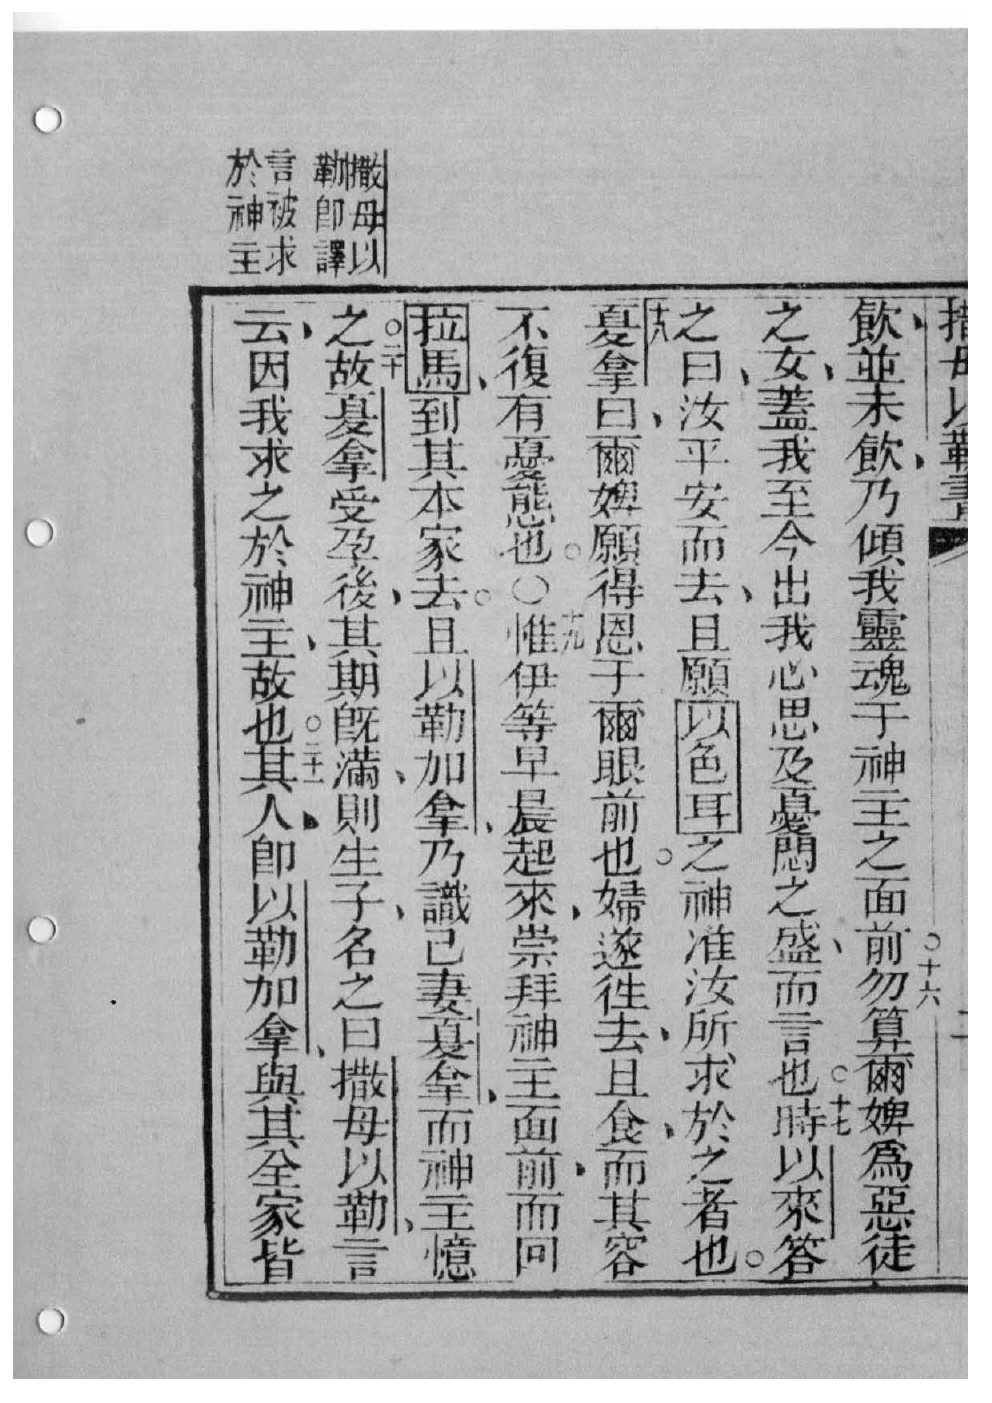 撒母以
勒即譯
言被求
於神主
撒母以勒書
二
飲、並未飲、乃傾我靈魂于神主之面前○十六勿算爾婢爲惡徒
之女、蓋我至今出我心思及憂悶之盛、而言也○十七時以來答
之曰、汝平安而去、且願以色耳之神准汝所求於之者也。
十八夏拿曰、爾婢願得恩于爾眼前也。婦遂徃去、且食、而其容
不復有憂態也。○十九惟伊等早晨起來、崇拜神主面前、而回
拉馬、到其本家去。且以勒加拿、乃識己妻夏拿、而神主憶
之○二十故夏拿受孕後、其期旣滿、則生子、名之曰撒母以勒、言
云、因我求之於神主、故也○二十一其人、即以勒加拿、與其全家皆